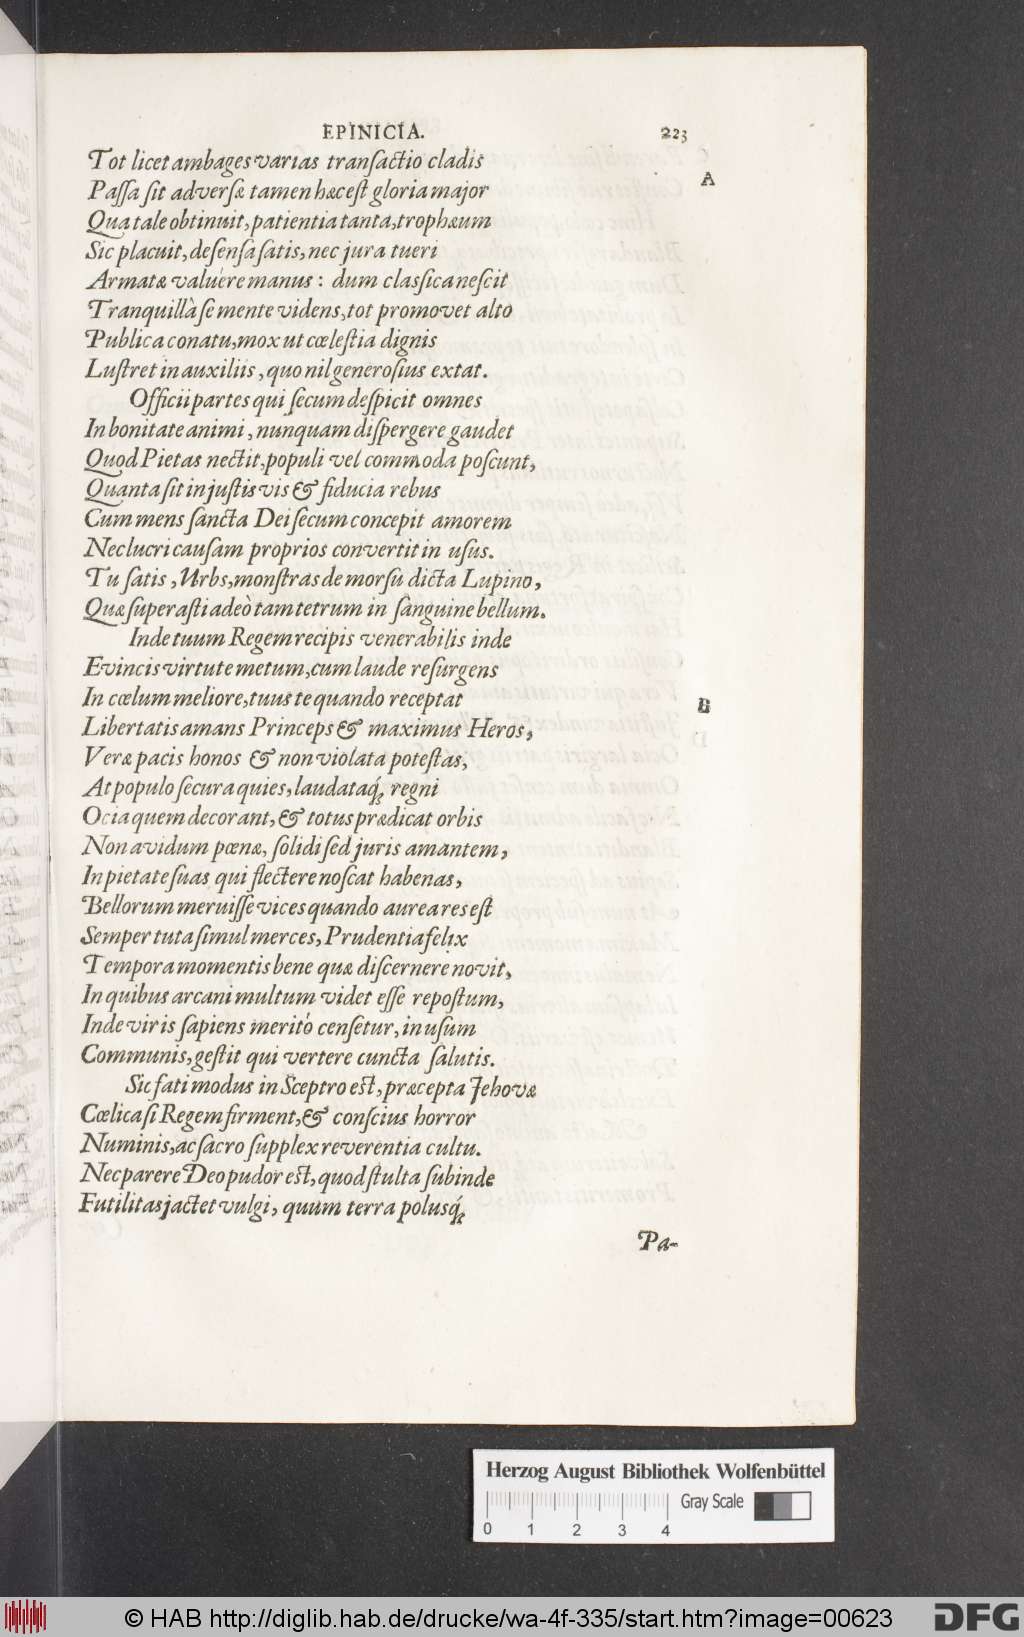 EPINICIA. 223
Tot licet ambages varias transactio cladis
A
Passa sit adversæ tamen hæc est gloria major
Qua tale obtinuit, patientia tanta, trophæum
Sic placuit, defensa satis, nec jura tueri
Armatæ valuére manus: dum classica nescit
Tranquillâ se mente videns, tot promovet alto
Publica conatu, mox ut cœlestia dignis
Lustret in auxiliis, quo nil generosius extat.
Officii partes qui secum despicit omnes
In bonitate animi, nunquam dispergere gaudet
Quod Pietas nectit, populi vel commoda poscunt,
Quanta sit in justis vis & fiducia rebus
Cum mens sancta Dei secum concepit amorem
Nec lucri causam proprios convertit in usus.
Tu satis, Urbs, monstras de morsu dicta Lupino,
Quæ superasti adeò tam tetrum in sanguine bellum.
Inde tuum Regem recipis venerabilis inde
Evincis virtute metum, cum laude resurgens
In cœlum meliore, tuus te quando receptat
B
Libertatis amans Princeps & maximus Heros,
Veræ pacis honos & non violata potestas,
At populo secura quies, laudataq́; regni
Ocia quem decorant, & totus prædicat orbis
Non avidum pœnæ, solidi sed juris amantem,
In pietate suas qui flectere noscat habenas,
Bellorum meruisse vices quando aurea res est
Semper tuta simul merces, Prudentia felix
Tempora momentis bene quæ discernere novit,
In quibus arcani multum videt esse repostum,
Inde viris sapiens meritò censetur, in usum
Communis, gestit qui vertere cuncta salutis.
Sic fati modus in Sceptro est, præcepta Jehovæ
Cœlica si Regem firment, & conscius horror
Numinis, ac sacro supplex reverentia cultu.
Nec parere Deo pudor est, quod stulta subinde
Futilitas jactet vulgi, quum terra polusq́;
Pa-
Herzog August Bibliothek Wolfenbüttel
Gray Scale
0 1 2 3 4
© HAB http://diglib.hab.de/drucke/wa-4f-335/start.htm?image=00623
DFG